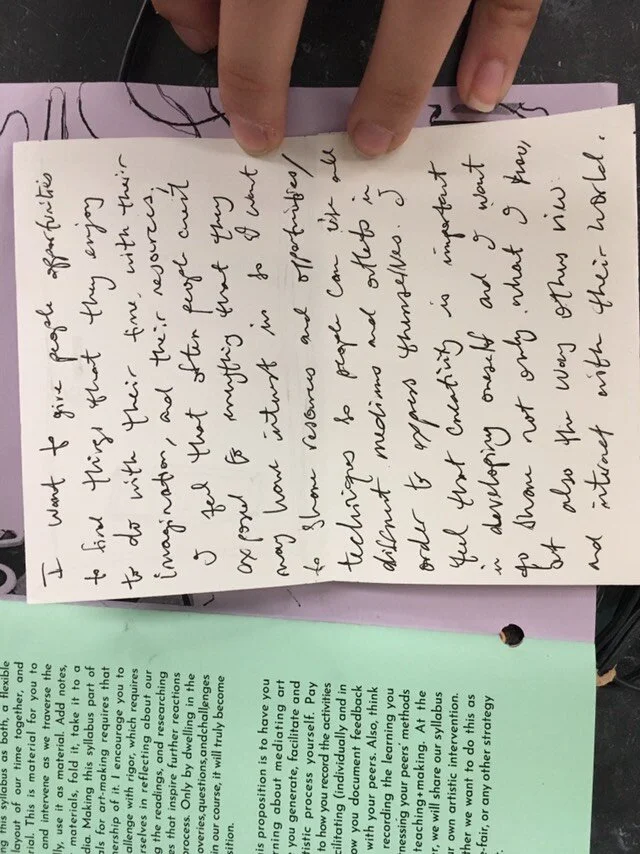 I want to give people opportunities
to find things that they enjoy
to do with their time, with their
imagination, and their resources.
I feel that often people aren't
exposed to everything that they
may have interest in so I want
to share resources and opportunities/
techniques so people can use all
different mediums and outlets in
order to express themselves. I
feel that creativity is important
in developing oneself and I want
to share not only what I know,
but also the way others view
and interact with their world.
ng this syllabus as both, a flexible
layout of our time together, and
rial. This is material for you to
and intervene as we traverse the
lly, use it as material. Add notes,
materials, fold it, take it to a
dia. Making this syllabus part of
als for art-making requires that
nership of it. I encourage you to
allenge with rigor, which requires
rselves in reflecting about our
g the readings, and researching
es that inspire further reactions
process. Only by dwelling in the
overies,questions,andchallenges
in our course, it will truly become
sition.
is proposition is to have you
rning about mediating art
you generate, facilitate and
tistic process yourself. Pay
to how you record the activities
cilitating (individually and in
ow you document feedback
with your peers. Also, think
recording the learning you
nessing your peers' methods
teaching+making. At the
r, we will share our syllabus
ur own artistic intervention.
ther we want to do this as
-fair, or any other strategy